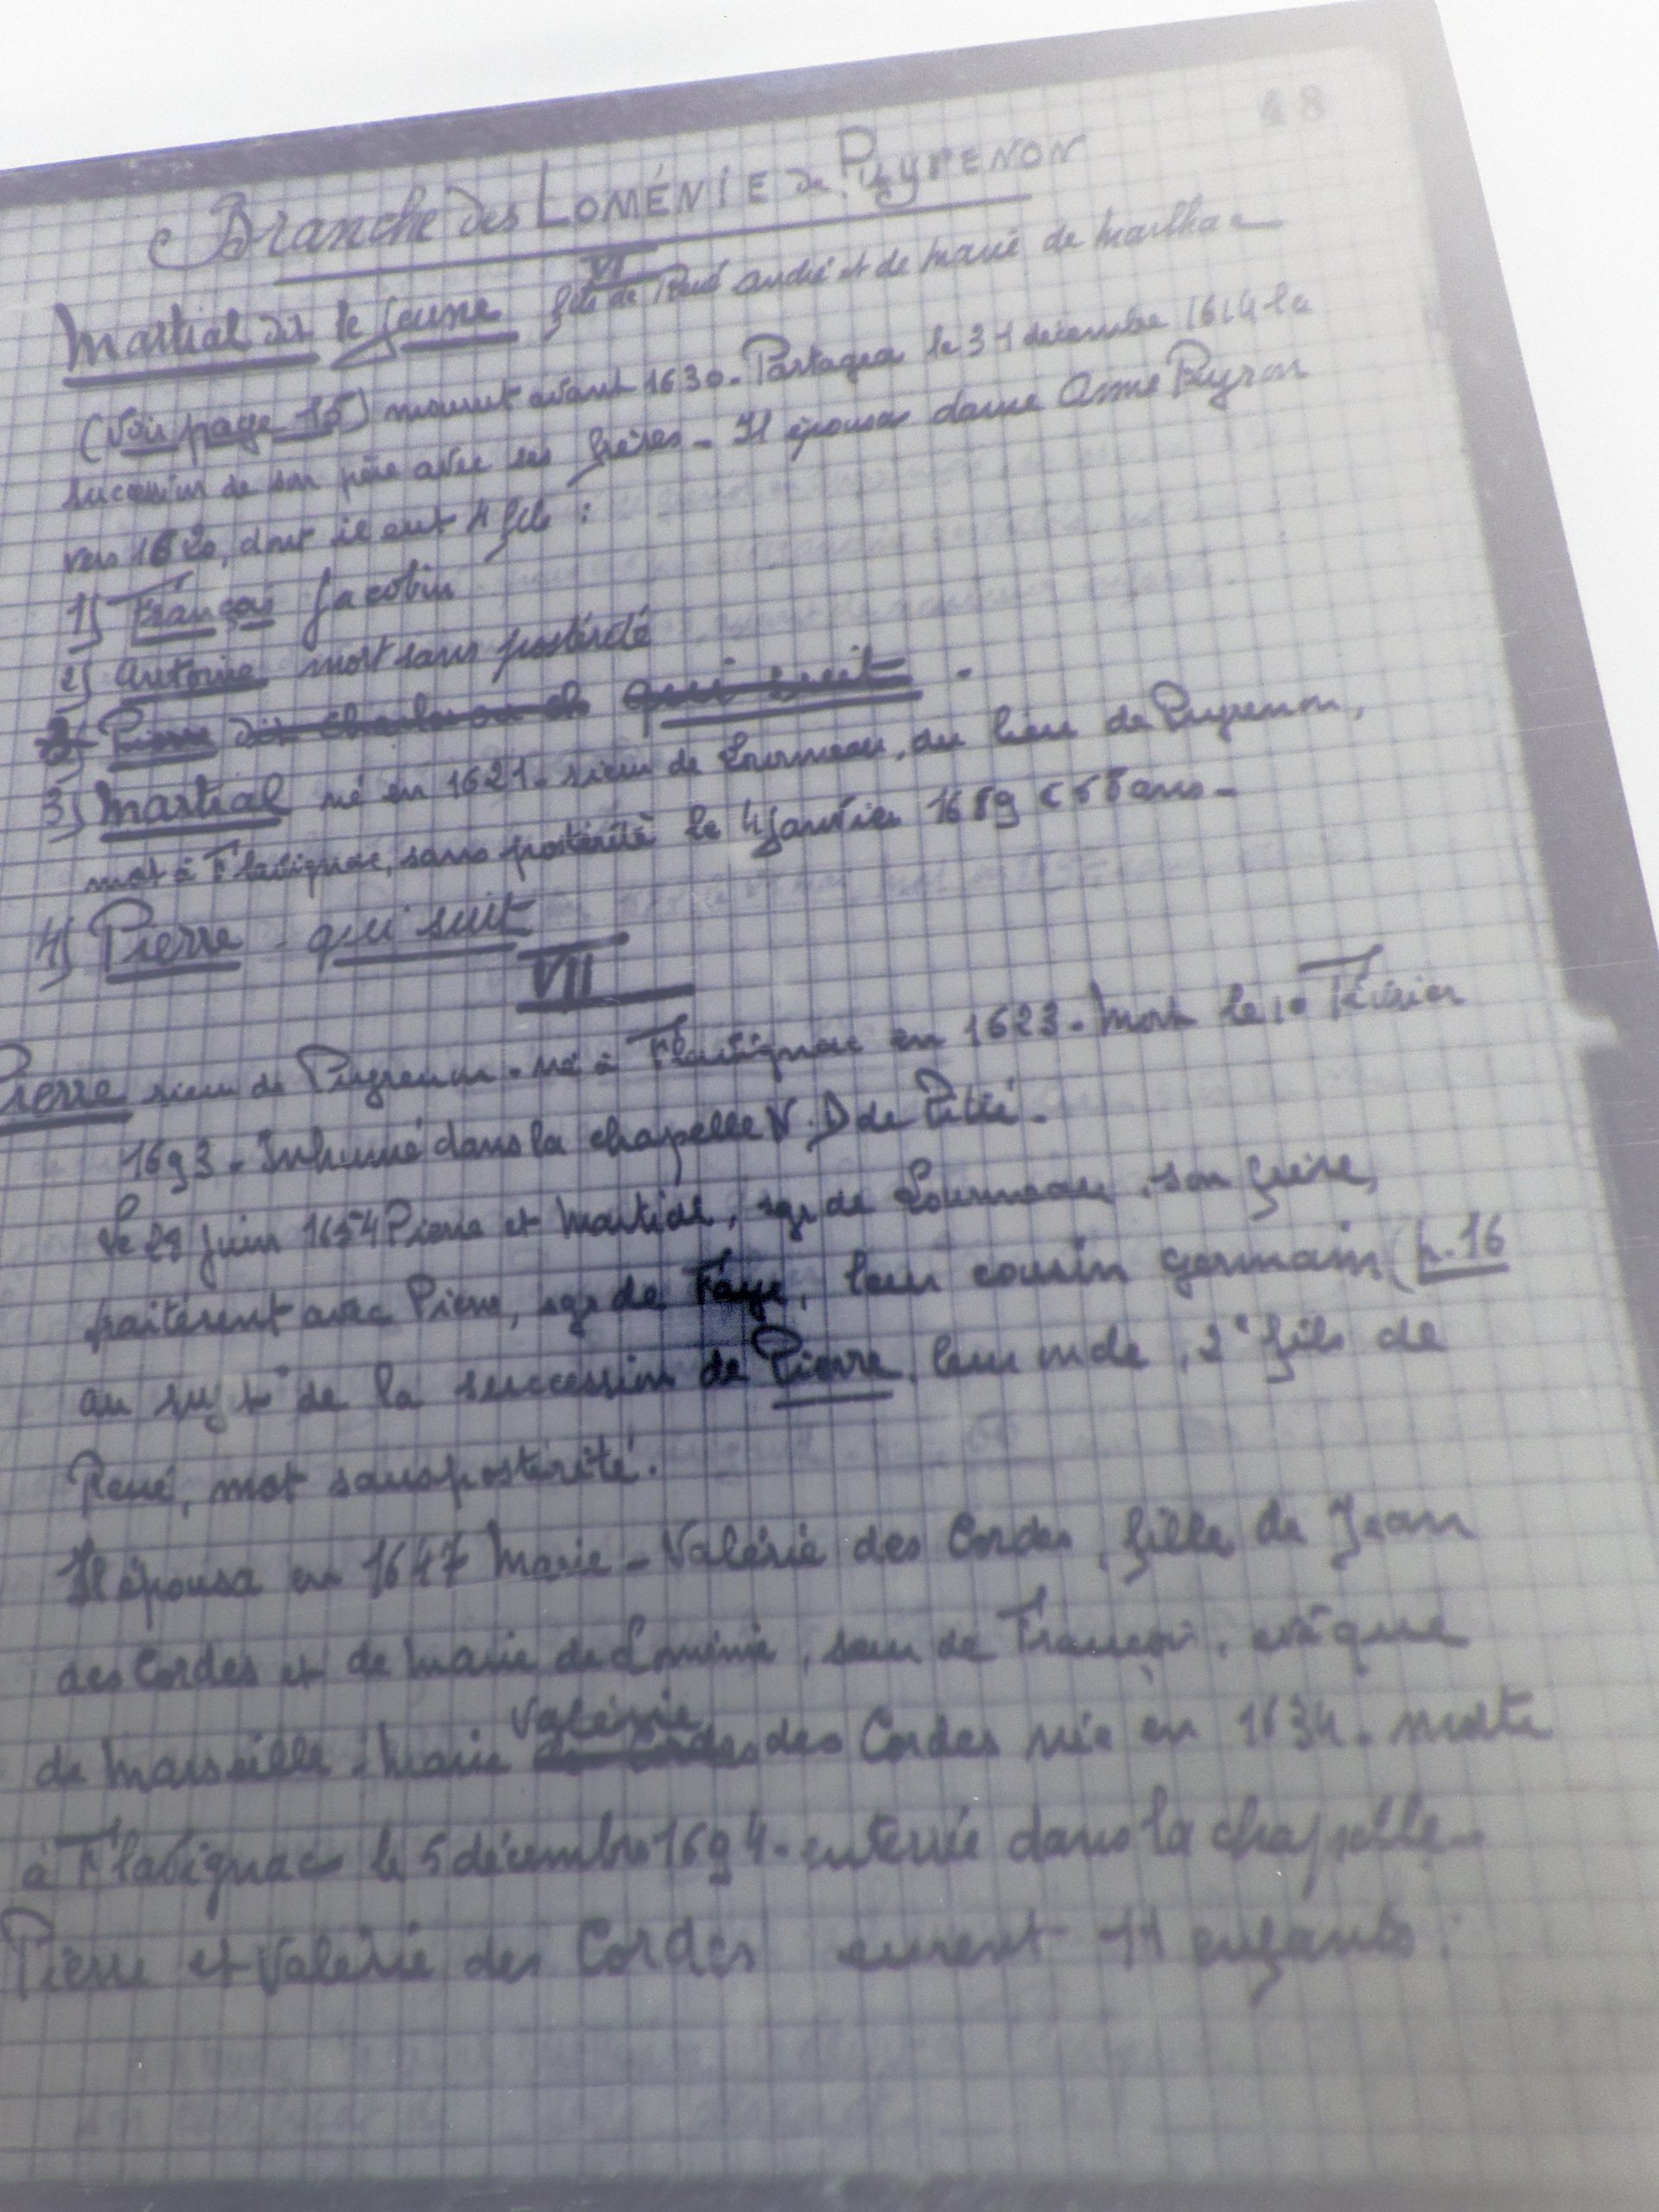 18
Branche des LOMÉNIE de PUYRENON
VI
Martial dit le jeune fils de René André et de Marie de Mailhac
(Voir page 15) mourut avant 1630. Partagea le 31 décembre 1614 la
succession de son père avec ses frères - Il épousa dame Anne Peyron
vers 1620, dont il eut 4 fils :
1) François Jacobin
2) Antoine mort sans postérité
3) Pierre dit qui suit .
3) Martial né en 1621 - sieur de Lourmeau, du lieu de Puyrenon,
mot à Flavignac, sans postérité le 4 janvier 1689 ans -
4) Pierre - qui suit
VII
Pierre sieur de Puyrenon - né à Flavignac en 1623 - Mort le 10 Février
1693 - Inhumé dans la chapelle N.D de Pitié -
Le 29 juin 1654 Pierre et Martial, sgr de Lourmeau, son frère,
traitèrent avec Pierre, sgr de Faye, leur cousin germain (p. 16
au sujet de la succession de Pierre, leur oncle, 2e fils de
René, mot sans postérité.
Il épousa en 1647 Marie - Valérie des Cordes, fille de Jean
des Cordes et de Marie de Loménie, sœur de François, évêque
de Marseille. Marie Valérie des Cordes des Cordes née en 1634 - morte
à Flavignac le 5 décembre 1694 - enterrée dans la chapelle -
Pierre et Valérie des Cordes eurent 11 enfants :